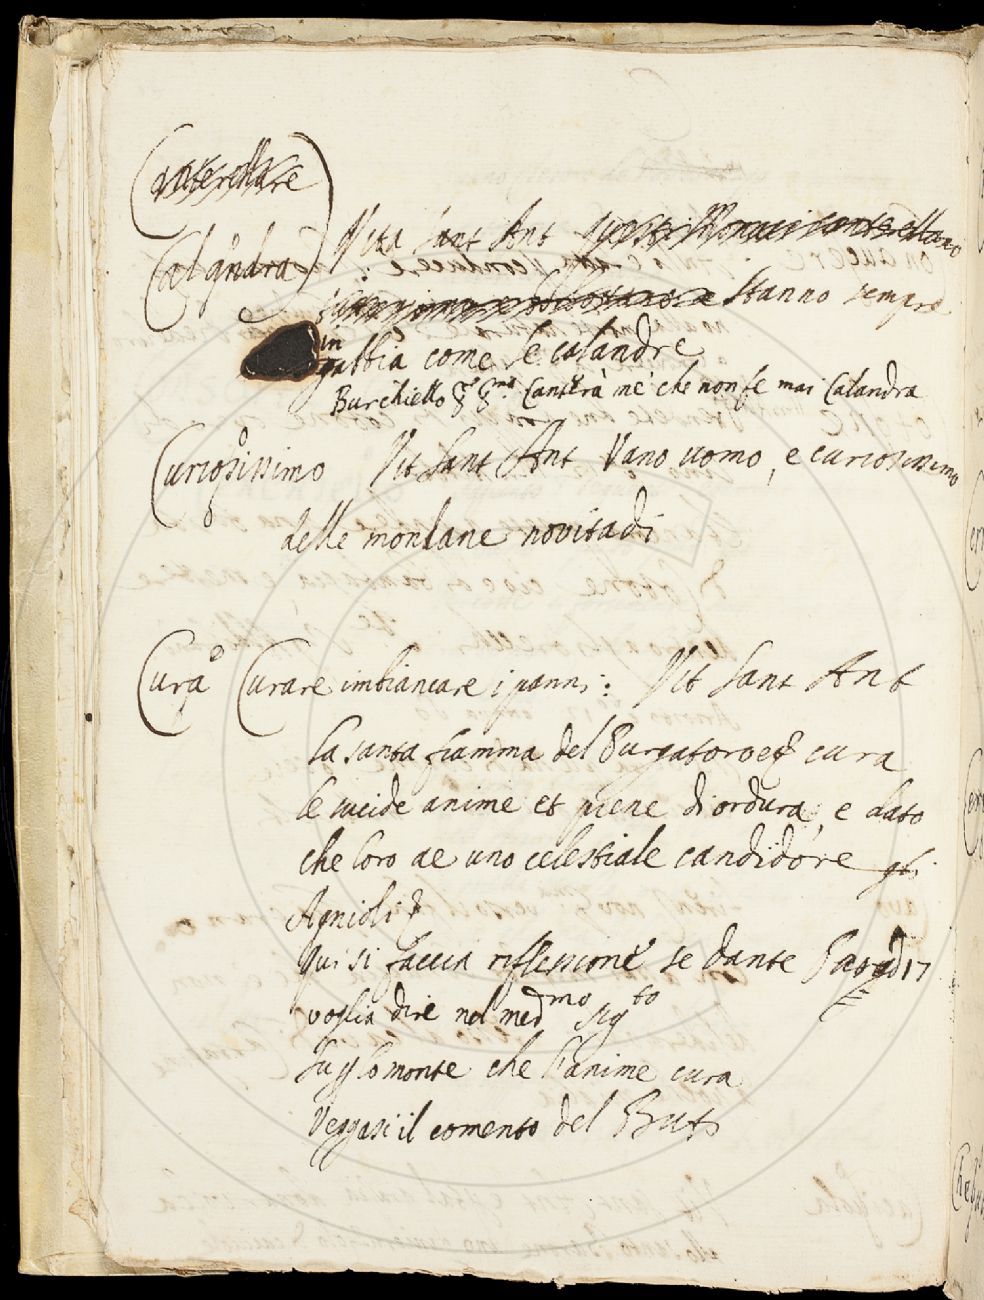 Calandra Vita Sant Ant
Stanno sempre
in gabbia come le calandre
Burchiello Canterà me' che non fe mai Calandra
Curiosissimo Vit Sant Ant Vano uomo, e curiosissimo
delle mondane novitadi
Cura Curare imbiancare i panni: Vit Sant Ant
La santa fiamma del Purgatoro et cura
le sucide anime et piene di ordura, e dato
che loro ae uno celestiale candidore
Agnioli
Qui si faccia riflessione se Dante Parad 17
voglia dire nel med.mo sig.to
Su p lo monte che l'anime cura
Veggasi il comento del But